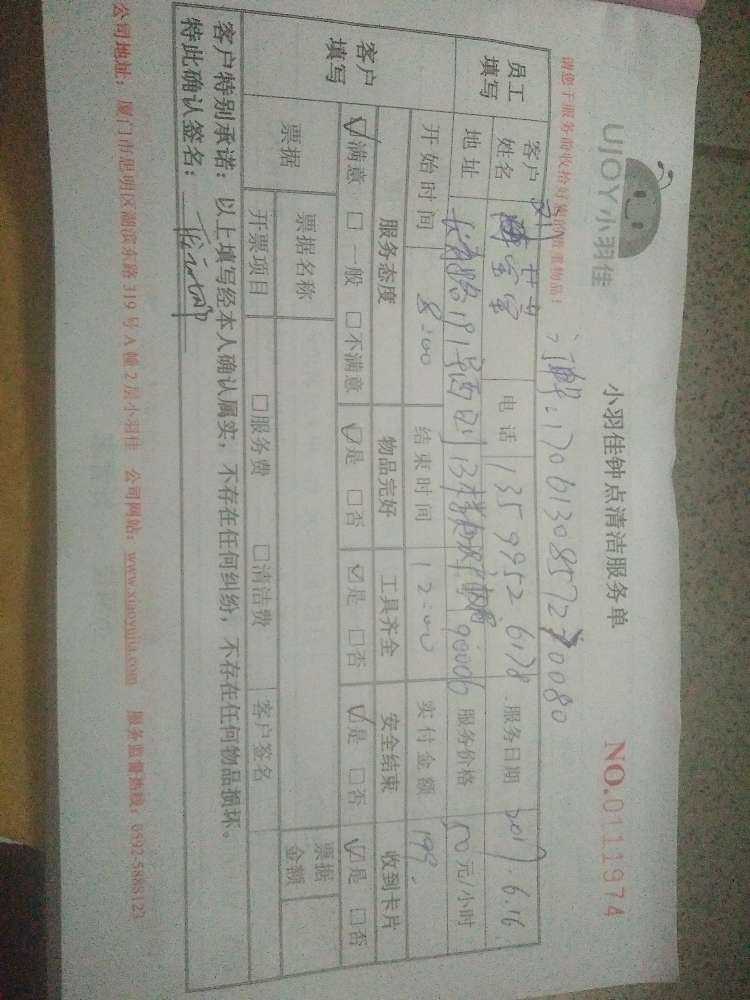 UJOY小羽佳
小羽佳钟点清洁服务单
NO.0111974
订单:17061308572 70080
请您于服务前收拾好您的贵重物品!
员工填写
客户姓名 电话 13599526178 服务日期 2017.6.16
地址 号西 13楼 服务价格 50元/小时
开始时间 8:00 结束时间 12:00 实付金额 199.
客户填写
服务态度 物品完好 工具齐全 安全结束 收到卡片
☑满意 □一般 □不满意 ☑是 □否 ☑是 □否 ☑是 □否 ☑是 □否
票据 票据名称 票据金额
开票项目 □服务费 □清洁费 客户签名
客户特别承诺:以上填写经本人确认属实,不存在任何纠纷,不存在任何物品损坏。
特此确认签名:
公司地址:厦门市思明区湖滨东路319号A幢2层小羽佳 公司网站:www.xiaoyujia.com 服务监督热线:0592-5888123